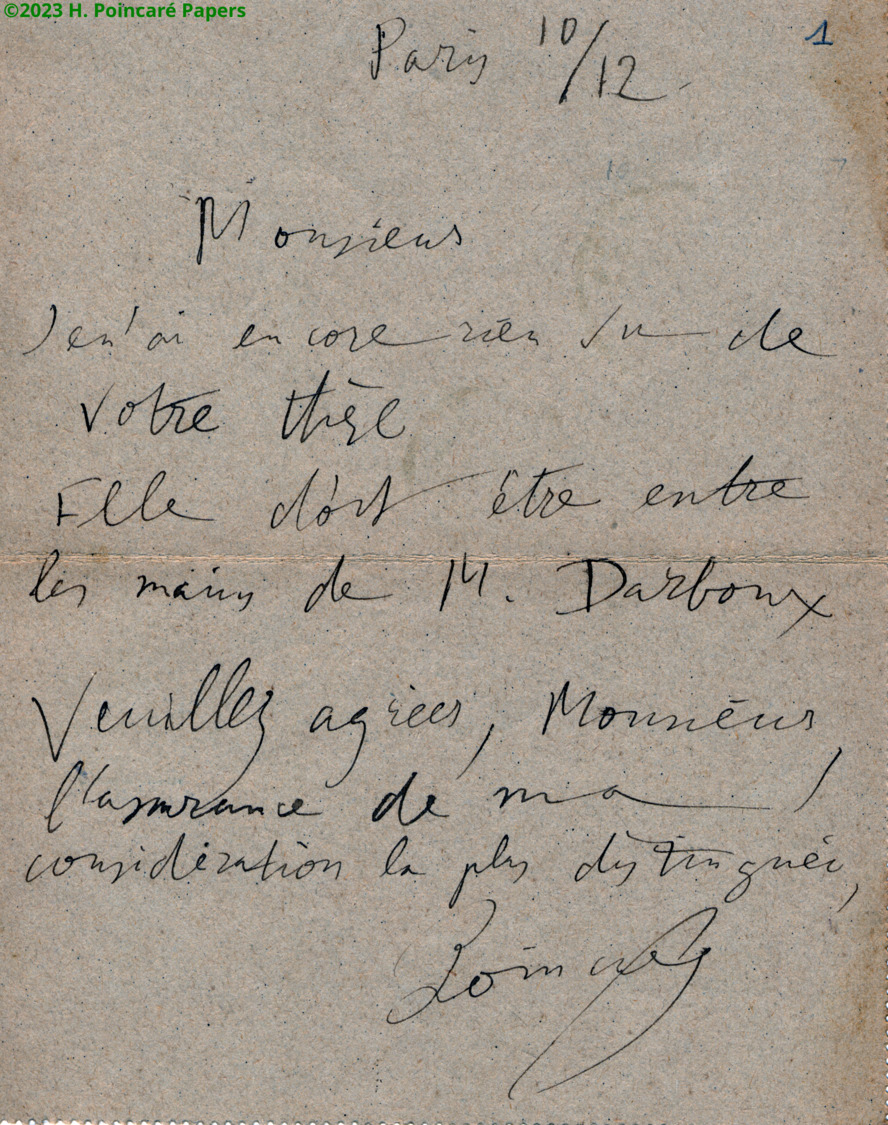 ©2023 H. Poincaré Papers
1
Paris 10/12
Monsieur
Je n'ai encore rien vu de
votre thèse
Elle doit être entre
les mains de M. Darboux
Veuillez agréer, Monsieur,
l'assurance de ma
considération la plus distinguée,
Poincaré